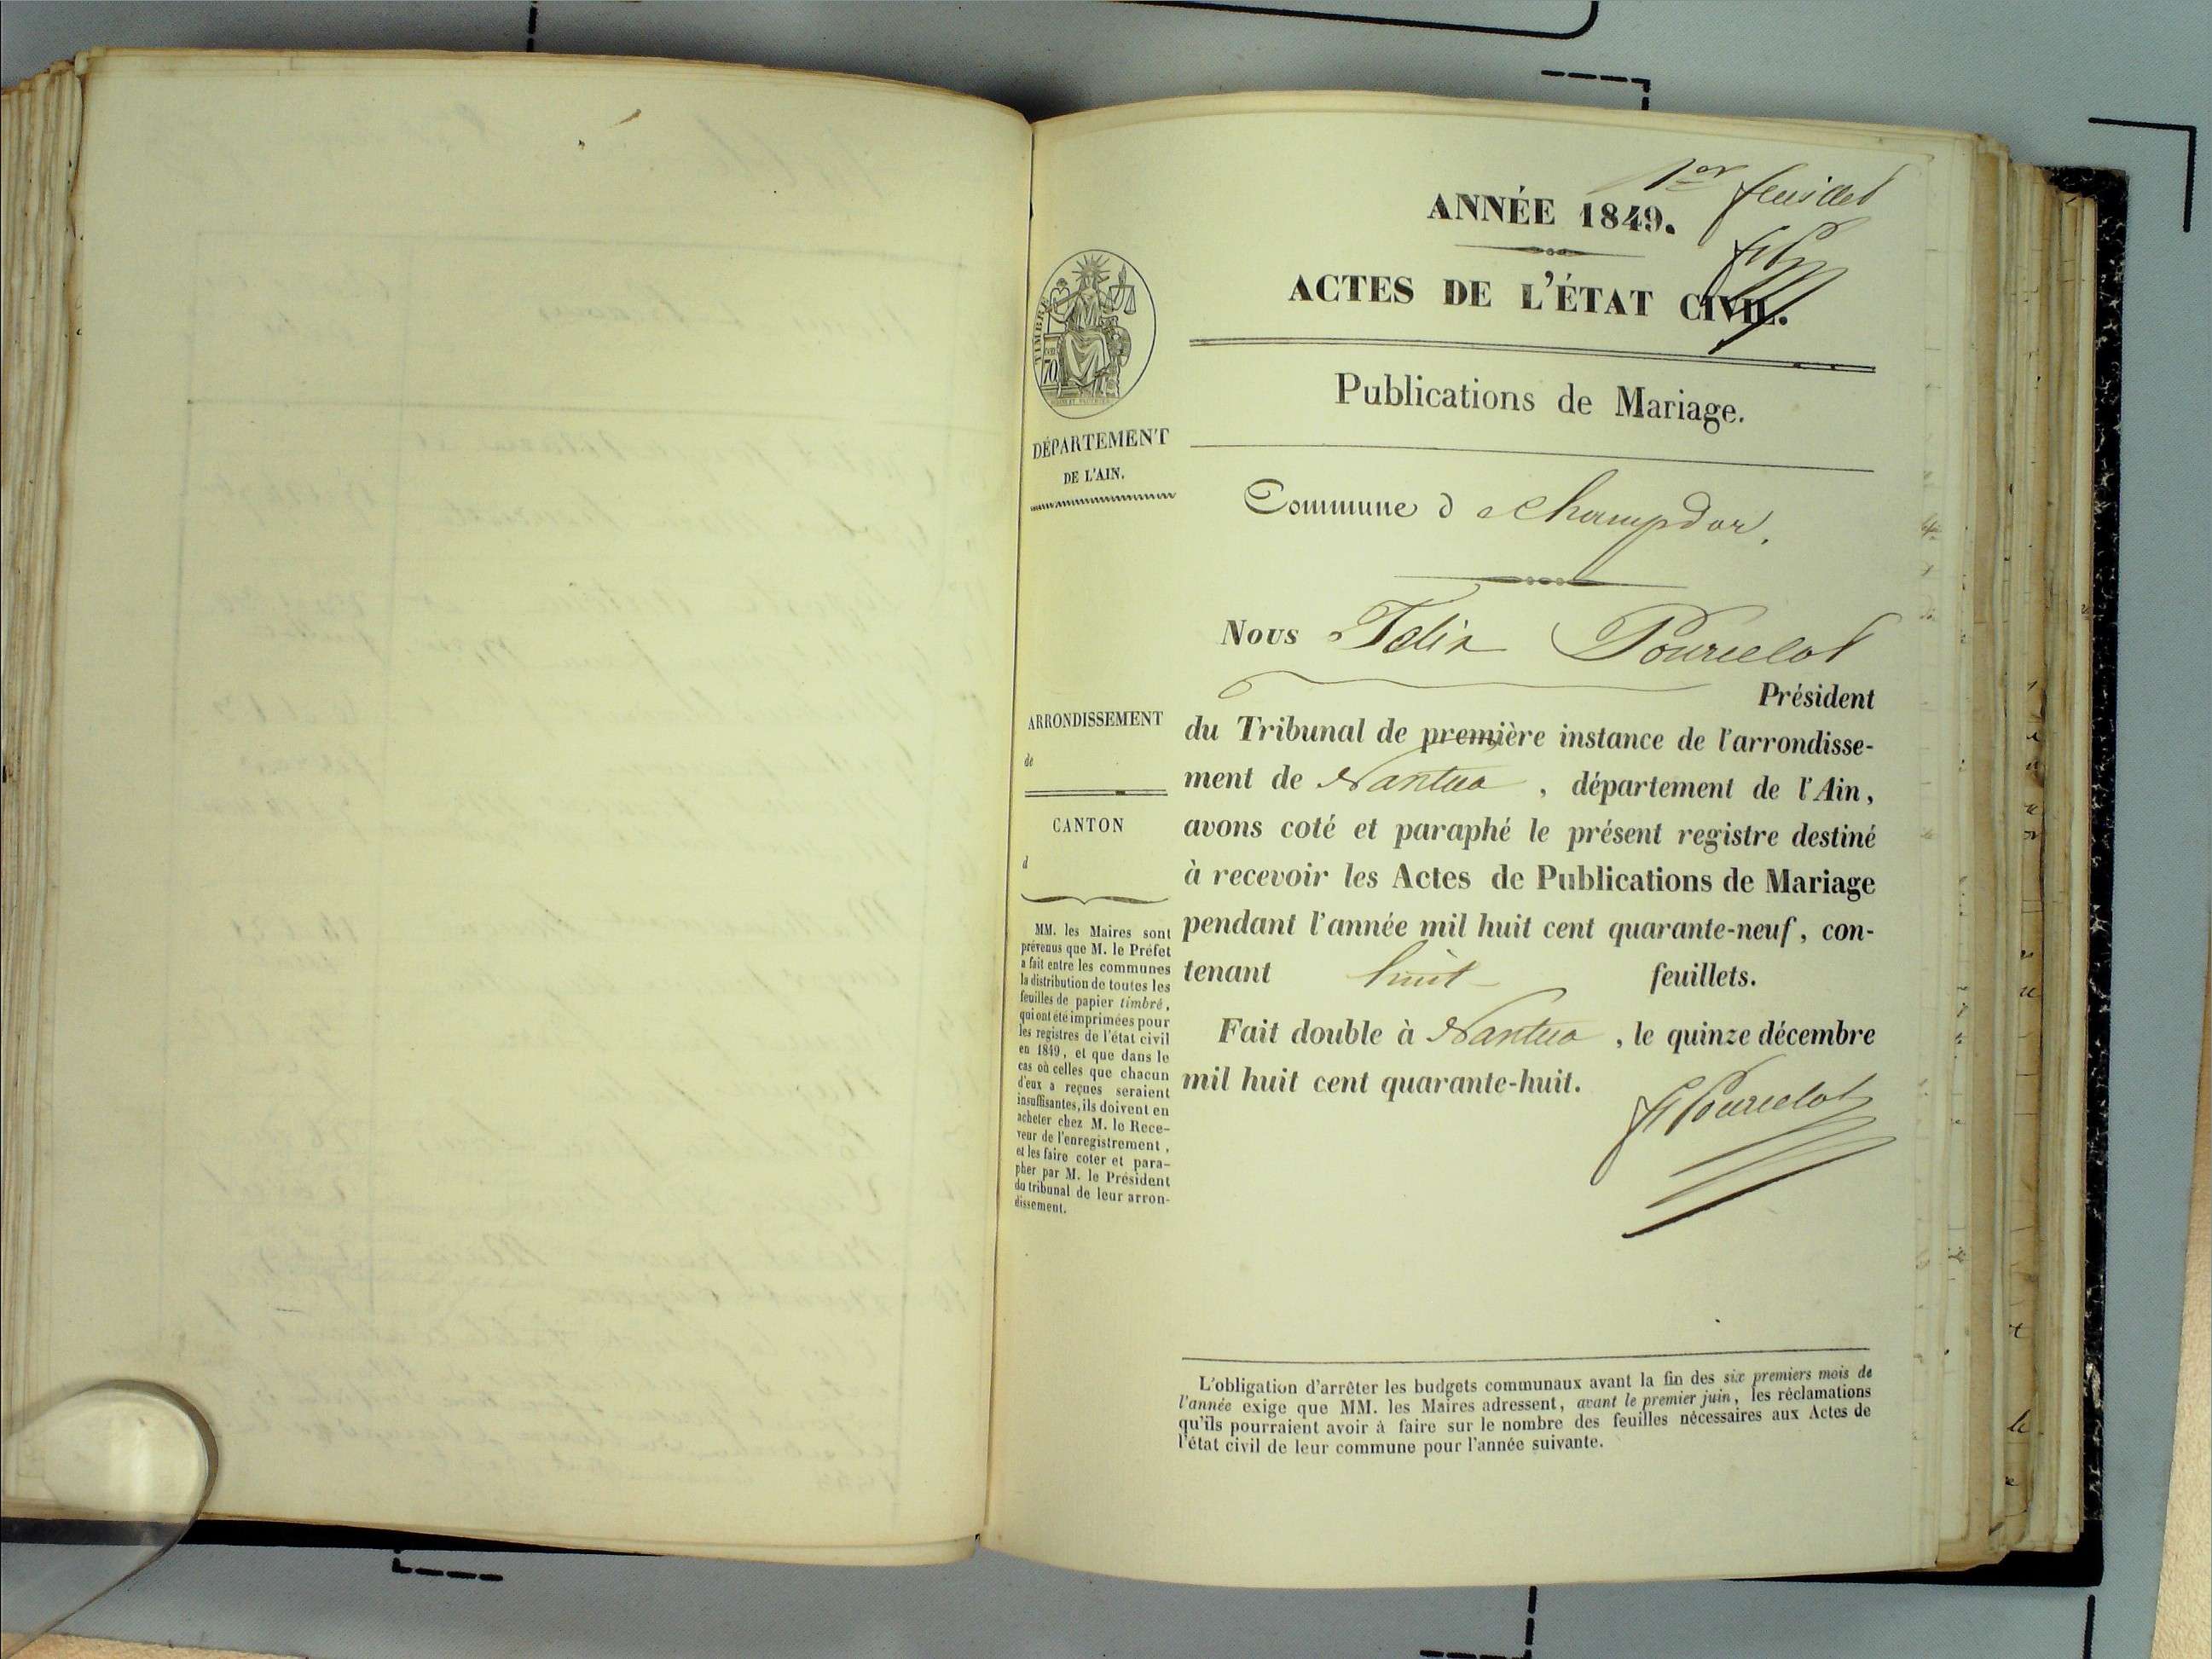 1er feuillet
ANNÉE 1849.
ACTES DE L'ÉTAT CIVIL.
Publications de Mariage.
TIMBRE
70
DÉPARTEMENT
DE L'AIN.
Commune d e Champdor.
Nous Felix Pourcelot
Président
du Tribunal de première instance de l'arrondisse-
ment de Nantua , département de l'Ain,
avons coté et paraphé le présent registre destiné
à recevoir les Actes de Publications de Mariage
pendant l'année mil huit cent quarante-neuf, con-
tenant huit feuillets.
Fait double à Nantua , le quinze décembre
mil huit cent quarante-huit.
F Pourcelot
ARRONDISSEMENT
de
CANTON
d
MM. les Maires sont
prévenus que M. le Préfet
a fait entre les communes
la distribution de toutes les
feuilles de papier timbré,
qui ont été imprimées pour
les registres de l'état civil
en 1849, et que dans le
cas où celles que chacun
d'eux a reçues seraient
insuffisantes, ils doivent en
acheter chez M. le Rece-
veur de l'enregistrement,
et les faire coter et para-
pher par M. le Président
du tribunal de leur arron-
dissement.
L'obligation d'arrêter les budgets communaux avant la fin des six premiers mois de
l'année exige que MM. les Maires adressent, avant le premier juin, les réclamations
qu'ils pourraient avoir à faire sur le nombre des feuilles nécessaires aux Actes de
l'état civil de leur commune pour l'année suivante.